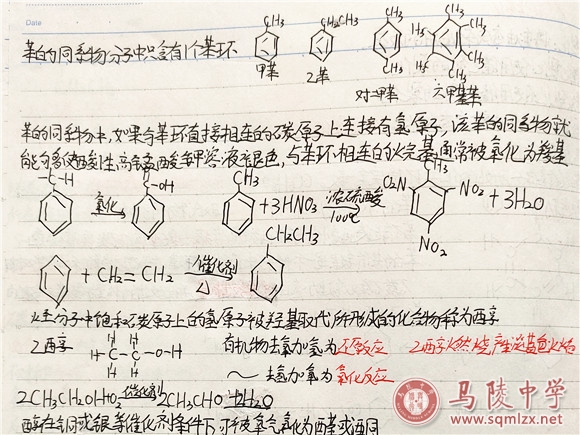 Date
苯的同系物分子中只含有1个苯环
CH3 CH2CH3 CH3 CH3
甲苯 乙苯 对二甲苯 六甲基苯
苯的同系物中,如果与苯环直接相连的碳原子上连接有氢原子,该苯的同系物就
能够使酸性高锰酸钾溶液褪色,与苯环相连的烷基通常被氧化为羧基
-C-H 氧化 C-OH CH3 +3HNO3 浓硫酸 100℃ O2N CH3 NO2 NO2 +3H2O
+ CH2=CH2 催化剂 △ CH2CH3
烃分子中饱和碳原子上的氢原子被羟基取代所形成的化合物称为醇
乙醇 H-C-C-O-H 有机物去氧加氢为还原反应 乙醇燃烧,产生淡蓝色火焰
~去氢加氧为氧化反应
2CH3CH2OH+O2 催化剂 2CH3CHO+2H2O
醇在铜或银等催化剂条件下,可被氧气氧化为醛或酮
马陵中学
www.sqmlzx.net